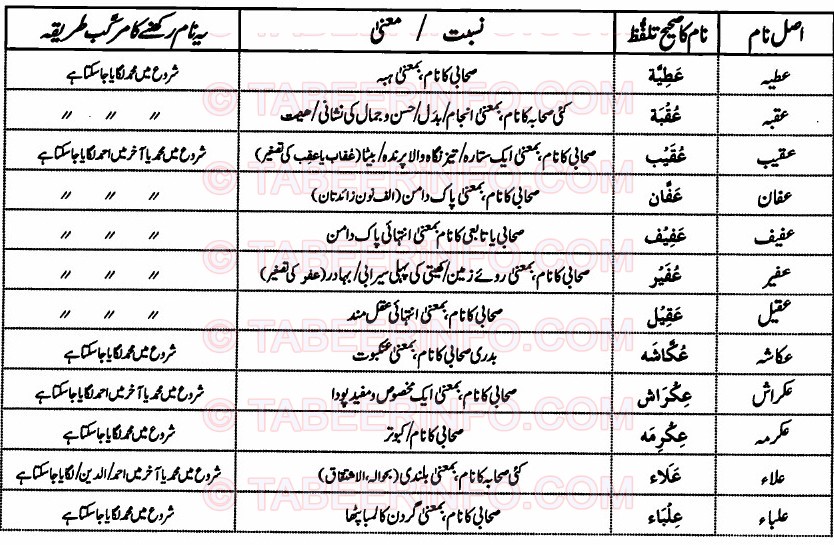 اصل نام	نام کا صحیح تلفّظ	نسبت / معنیٰ	یہ نام رکھنے کا مرکّب طریقہ
عطیہ	عَطِیَّة	صحابی کا نام، بمعنیٰ ہبہ	شروع میں محمد لگایا جا سکتا ہے
عقبہ	عُقْبَة	کئی صحابہ کا نام، بمعنیٰ انجام/بدَل/حسن و جمال کی نشانی/ھیئت	〃 〃 〃
عقیب	عُقَیْب	صحابی کا نام، بمعنیٰ ایک ستارہ/تیز نگاہ والا پرندہ/بیٹا (عُقاب یا عقِب کی تصغیر)	شروع میں محمد یا آخر میں احمد لگایا جا سکتا ہے
عفان	عَفَّان	صحابی کا نام، بمعنیٰ پاک دامن (الف نون زائدتان)	〃 〃 〃
عفیف	عَفِیْف	صحابی یا تابعی کا نام بمعنیٰ انتہائی پاک دامن	〃 〃 〃
عفیر	عُفَیْر	صحابی کا نام، بمعنیٰ روئے زمین/کھیتی کی پہلی سیرابی/بہادر (عفو کی تصغیر)	〃 〃 〃
عقیل	عَقِیْل	صحابی کا نام، بمعنیٰ انتہائی عقل مند	〃 〃 〃
عکاشہ	عُکَّاشَه	بدری صحابی کا نام، بمعنیٰ عنکبوت	شروع میں محمد لگایا جا سکتا ہے
عکراش	عِکْرَاش	صحابی کا نام، بمعنیٰ ایک مخصوص و مفید پودا	شروع میں محمد یا آخر میں احمد لگایا جا سکتا ہے
عکرمہ	عِکْرِمَه	صحابی کا نام/کبوتر	شروع میں محمد لگایا جا سکتا ہے
علاء	عَلَاء	کئی صحابہ کا نام، بمعنیٰ بلندی (بحوالہ، الاشتقاق)	شروع میں محمد یا آخر میں احمد/الدین/لگایا جا سکتا ہے
علباء	عِلْبَاء	صحابی کا نام، بمعنیٰ گردن کا لمبا پٹھا	شروع میں محمد لگایا جا سکتا ہے
© TABEERINFO.COM
© TABEERINFO.COM
© TABEERINFO.COM
© TABEERINFO.COM
© TABEERINFO.COM
© TABEERINFO.COM